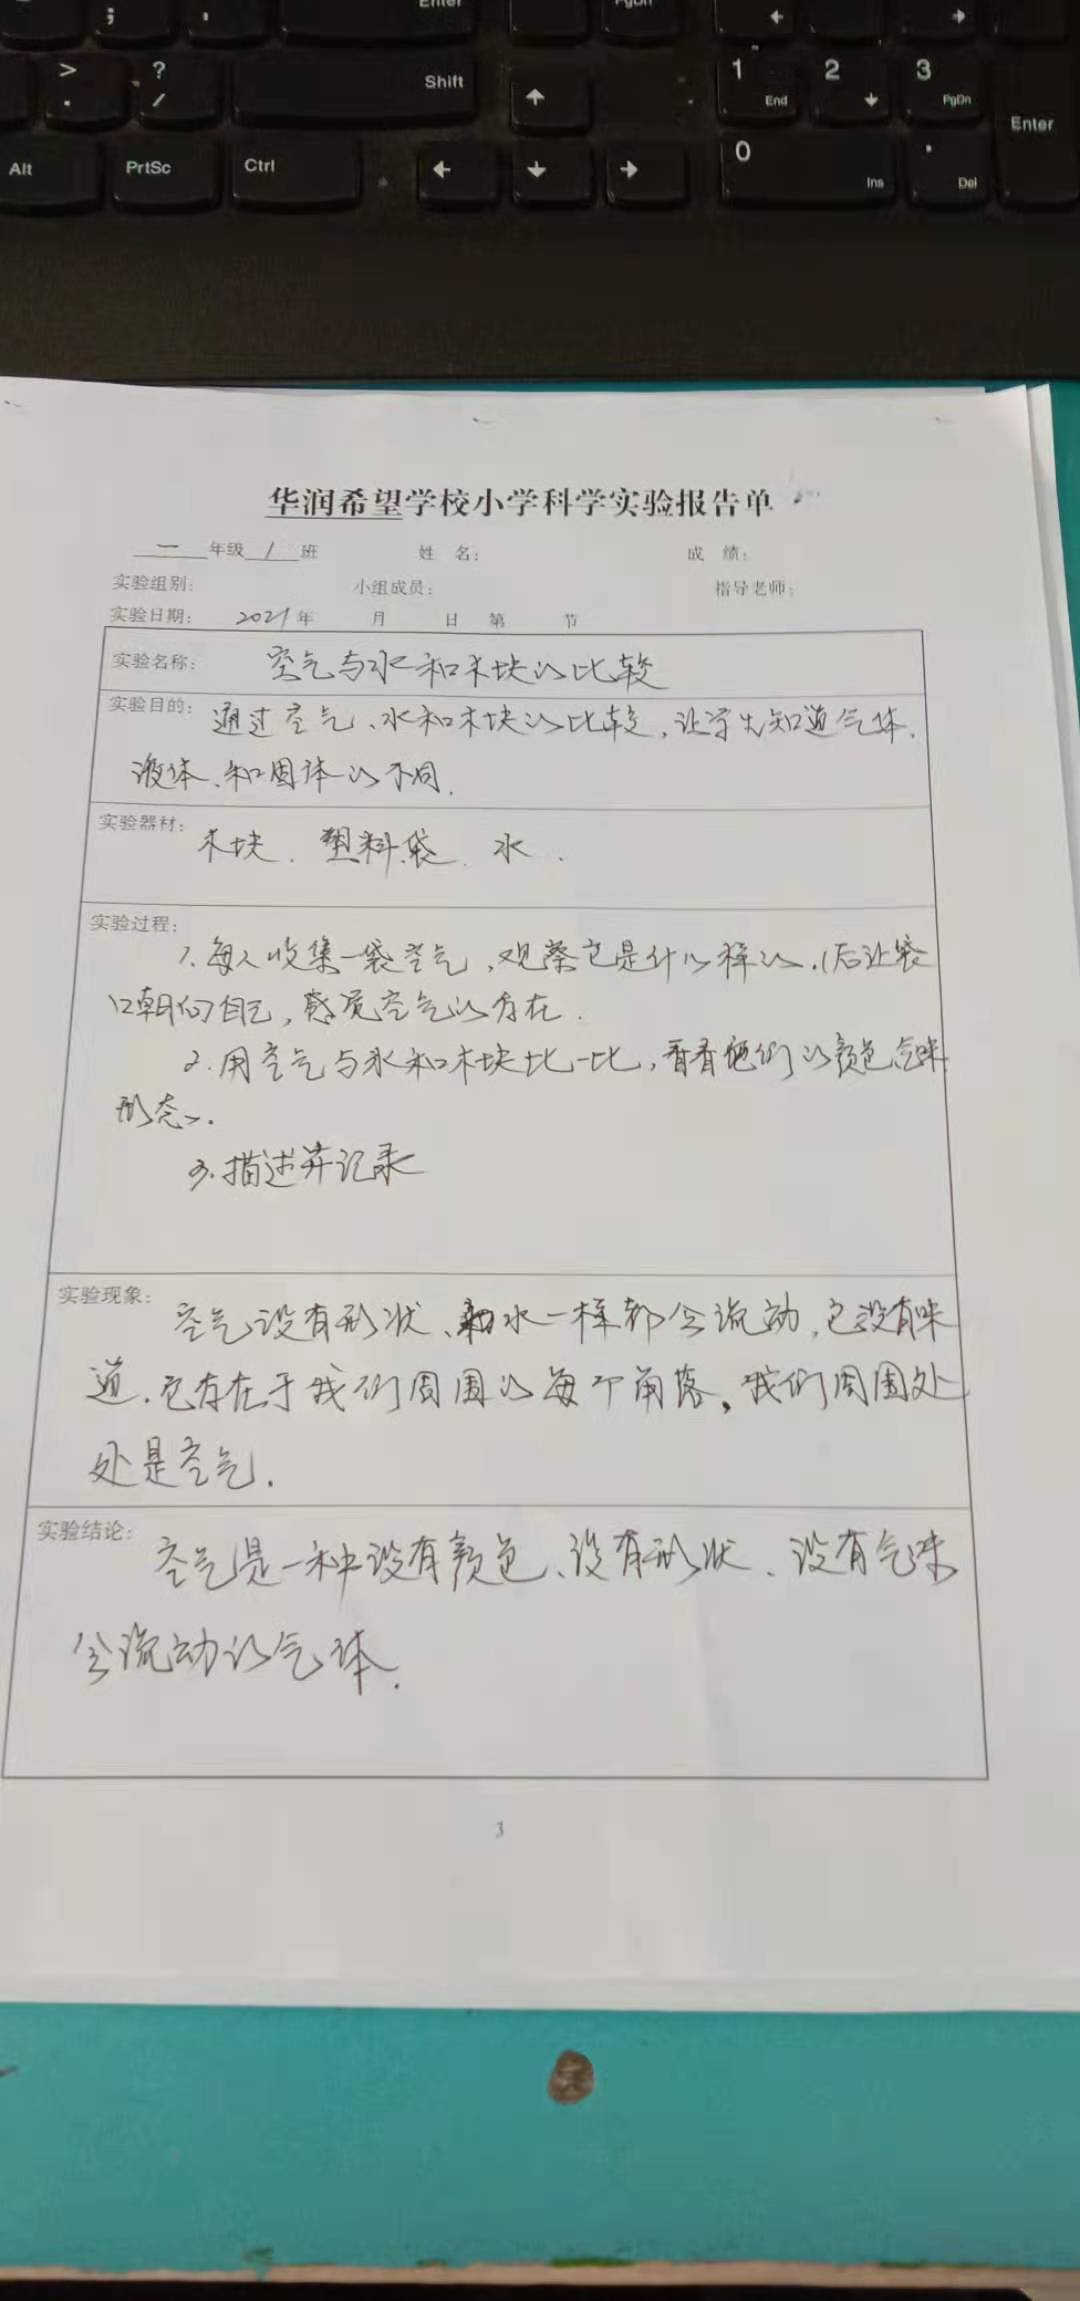 Enter
PgDn
; ' ← →
> . ? / Shift ↑ 1 End 2 ↓ 3 PgDn
Enter
Alt PrtSc Ctrl ← ↓ → 0 Ins . Del
华润希望学校小学科学实验报告单
一年级1班 姓 名： 成 绩：
实验组别： 小组成员： 指导老师：
实验日期： 2021年 月 日 第 节
实验名称： 空气与水和木块的比较
实验目的： 通过空气、水和木块的比较，让学生知道气体、
液体、和固体的不同.
实验器材： 木块、塑料袋、水.
实验过程：
1. 每人收集一袋空气，观察它是什么样的.后让袋
口朝们自己，感觉空气的存在.
2. 用空气与水和木块比一比，看看他们的颜色气味
形态.
3. 描述并记录
实验现象： 空气没有形状、和水一样都会流动，它没有味
道.它存在于我们周围的每个角落，我们周围处
处是空气.
实验结论： 空气是一种没有颜色、没有形状、没有气味
会流动的气体.
3